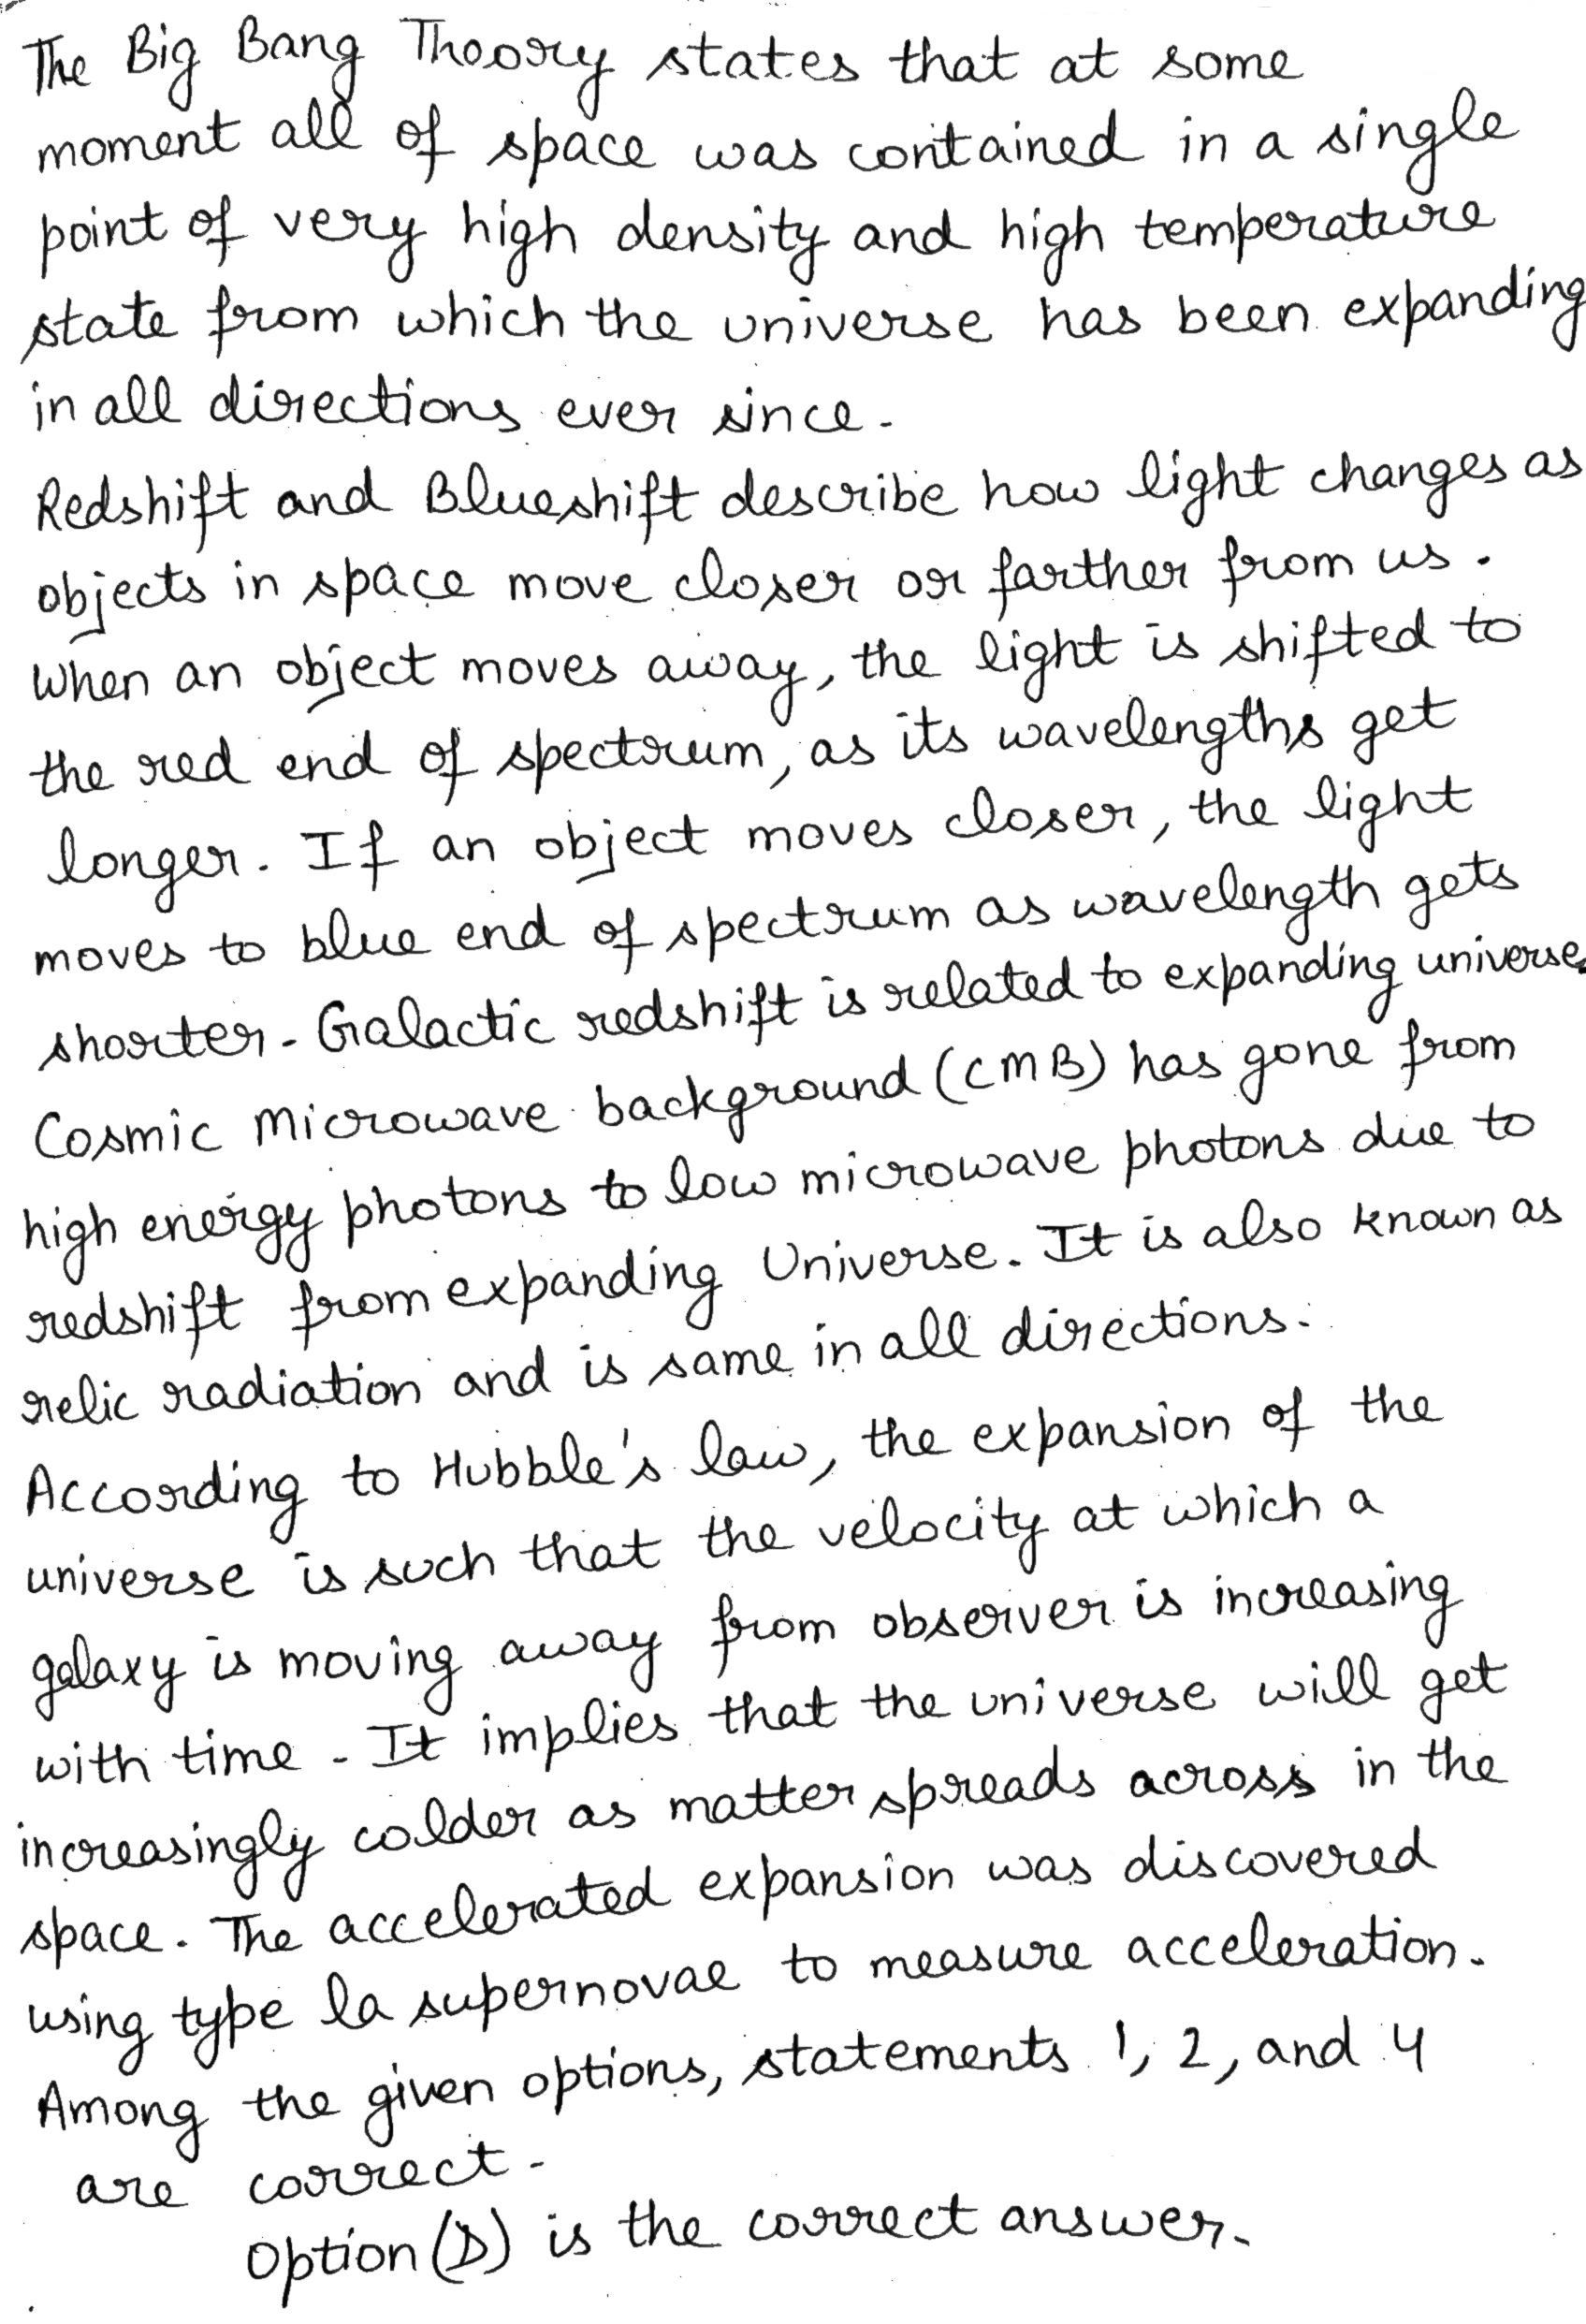 The Big Bang Theory states that at some
moment all of space was contained in a single
point of very high density and high temperature
state from which the universe has been expanding
in all directions ever since.
Redshift and Blueshift describe how light changes as
objects in space move closer or farther from us.
When an object moves away, the light is shifted to
the red end of spectrum, as its wavelengths get
longer. If an object moves closer, the light
moves to blue end of spectrum as wavelength gets
shorter. Galactic redshift is related to expanding universe.
Cosmic Microwave background (CMB) has gone from
high energy photons to low microwave photons due to
redshift from expanding Universe. It is also known as
relic radiation and is same in all directions.
According to Hubble's law, the expansion of the
universe is such that the velocity at which a
galaxy is moving away from observer is increasing
with time. It implies that the universe will get
increasingly colder as matter spreads across in the
space. The accelerated expansion was discovered
using type la supernovae to measure acceleration.
Among the given options, statements 1, 2, and 4
are correct.
Option (D) is the correct answer.